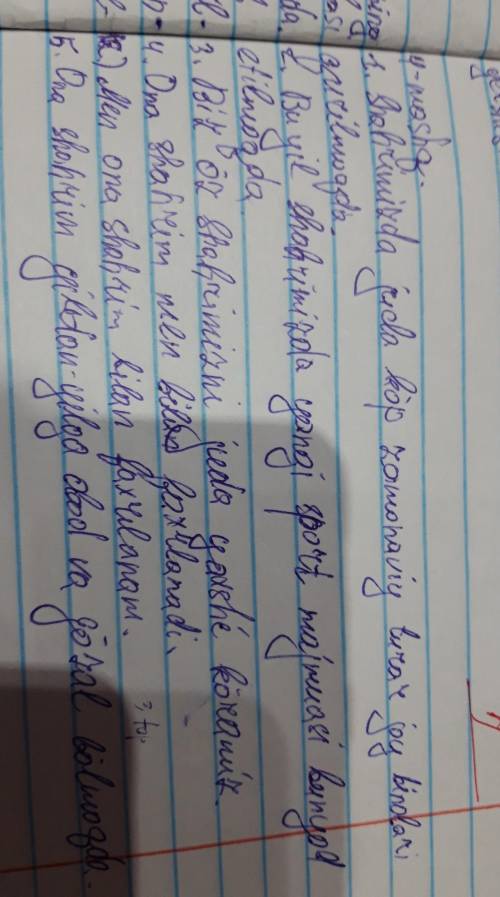 4-mashq.
1. Shahrimizda juda ko'p zamonaviy turar joy binolari
qurilmoqda.
2. Bu yil shahrimizda yangi sport majmuasi bunyod
etilmoqda
3. Biz öz shahrimizni juda yaxshi köramiz.
4. Ona shahrim men bilan faxrlanadi.
Men ona shahrim bilan faxrlanam.
5. Ona shahrim yildan-yilga obod va gözal bölmoqda.